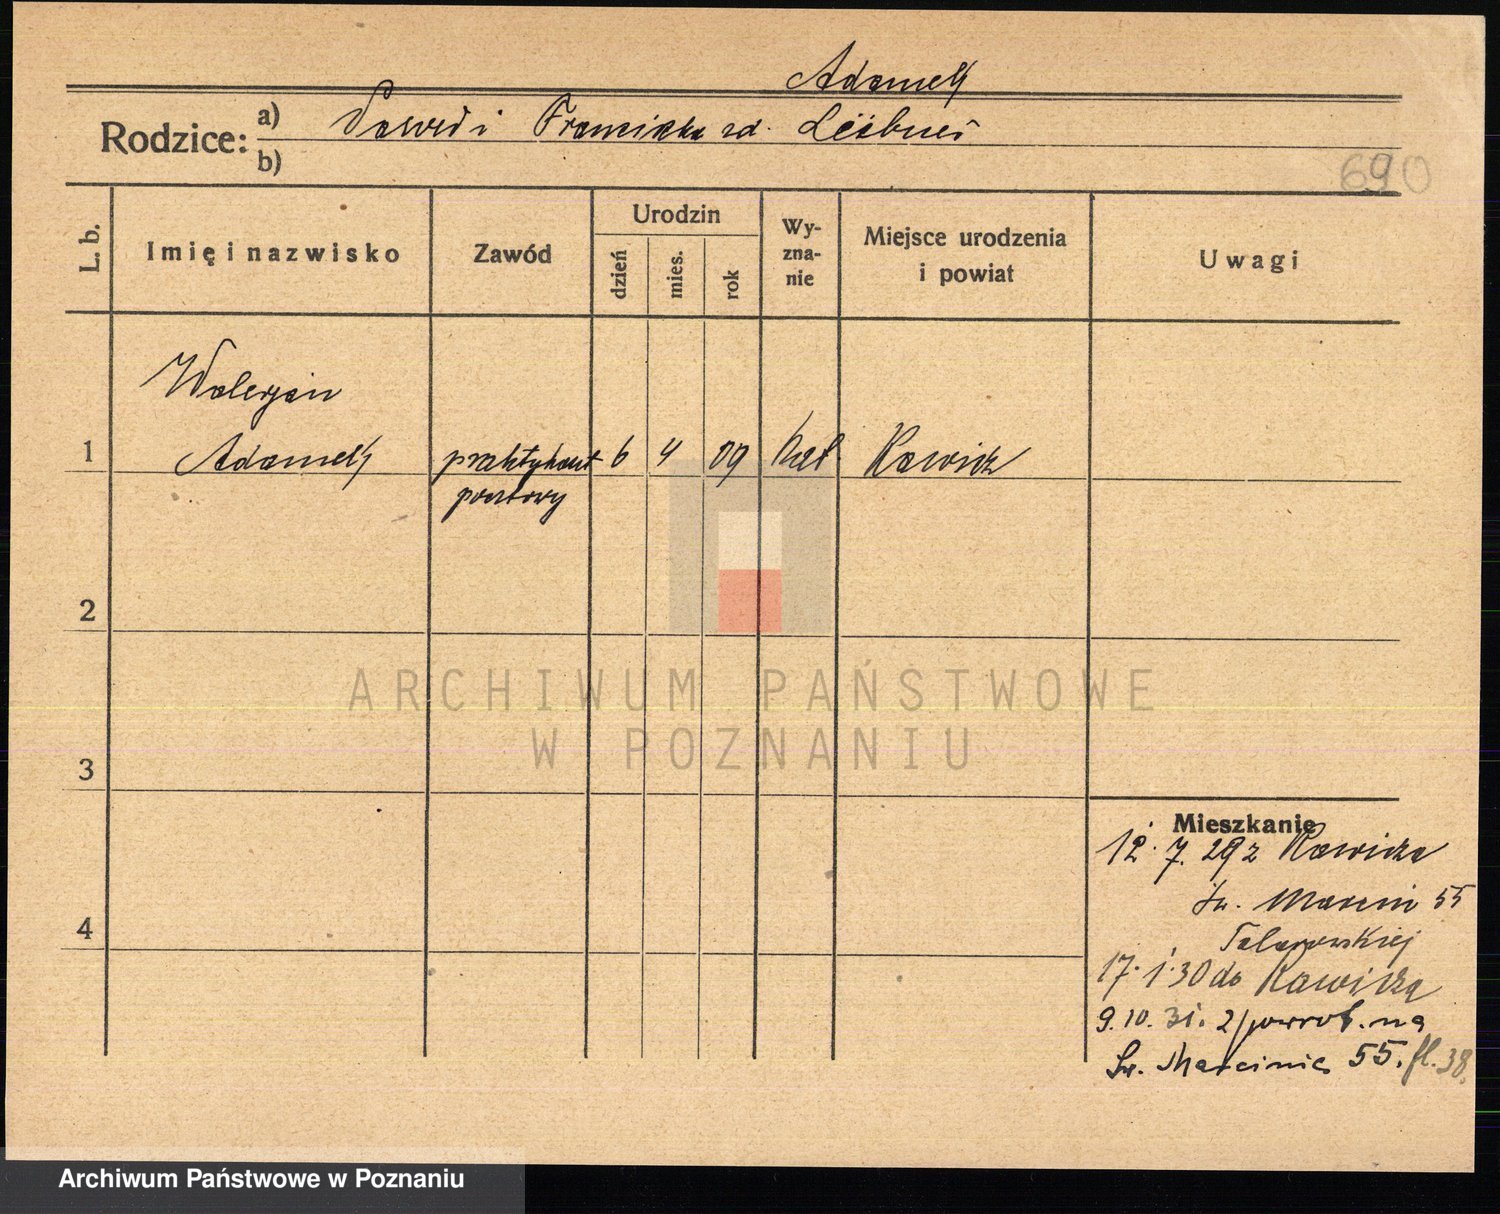 Adamek
Rodzice: a) Paweł i Franciszka zd.
b)
690
L. b.
Imię i nazwisko
Zawód
Urodzin
dzień
mies.
rok
Wy-
zna-
nie
Miejsce urodzenia
i powiat
Uwagi
Waleryan
1 Adamek praktykant 6 4 09 kat. Rawicz
pocztowy
2
3
4
Mieszkanie
12. 7. 29 z Rawicza
Św. Marcin 55
17. 1. 30 do Rawicza
9. 10. 31. z powrot. na
Św. Marcinie 55. fl. 38.
ARCHIWUM PAŃSTWOWE
W POZNANIU
Archiwum Państwowe w Poznaniu